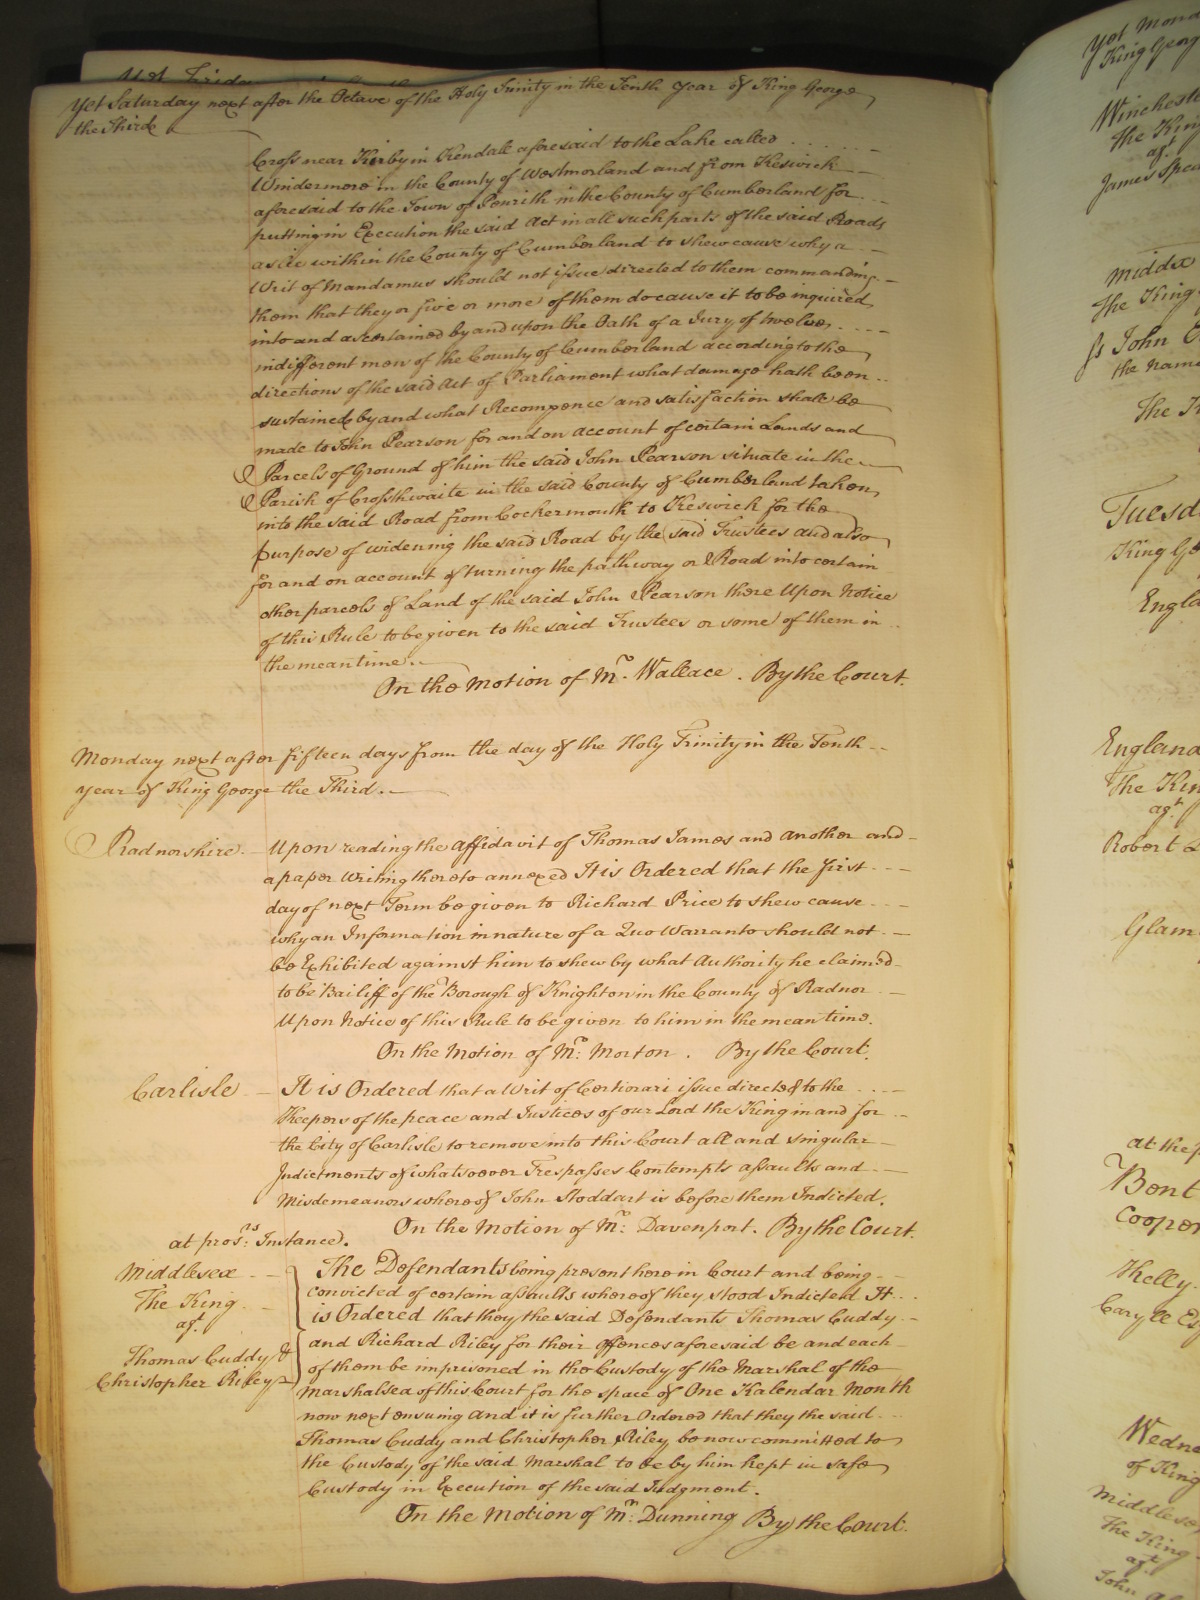 Yet Saturday next after the Octave of the Holy Trinity in the Tenth Year of King George
the Third
Cross near Kirby in Kendall aforesaid to the Lake called
Windermere in the County of Westmorland and from Keswick
aforesaid to the Town of Penrith in the County of Cumberland for
putting in Execution the said Act in all such parts of the said Roads
as lie within the County of Cumberland to shew cause why a
Writ of Mandamus should not issue directed to them commanding
them that they or five or more of them do cause it to be inquired
into and ascertained by and upon the Oath of a Jury of twelve
indifferent men of the County of Cumberland according to the
directions of the said Act of Parliament what damage hath been
sustained by and what Recompence and satisfaction shall be
made to John Pearson for and on account of certain Lands and
Parcels of Ground of him the said John Pearson situate in the
Parish of Crossthwaite in the said County of Cumberland taken
into the said Road from Cockermouth to Keswick for the
purpose of widening the said Road by the said Trustees and also
for and on account of turning the pathway or Road into certain
other parcels of Land of the said John Pearson there Upon Notice
of this Rule to be given to the said Trustees or some of them in
the mean time
On the Motion of Mr. Wallace. By the Court.
Monday next after fifteen days from the day of the Holy Trinity in the Tenth
year of King George the Third.
Radnorshire Upon reading the affidavit of Thomas James and another and
a paper Writing thereto annexed It is Ordered that the first
day of next Term be given to Richard Price to shew cause
why an Information in nature of a Quo Warranto should not
be Exhibited against him to shew by what Authority he claimed
to be Bailiff of the Borough of Knighton in the County of Radnor
Upon Notice of this Rule to be given to him in the mean time.
On the Motion of Mr. Morton. By the Court.
Carlisle It is Ordered that a Writ of Certiorari issue directed to the
Keepers of the peace and Justices of our Lord the King in and for
the City of Carlisle to remove into this Court all and singular
Indictments of whatsoever Trespasses Contempts assaults and
Misdemeanors whereof John Stoddart is before them Indicted.
On the Motion of Mr. Davenport. By the Court.
at pros:rs Instance.
Middlesex
The King
agt
Thomas Cuddy &
Christopher Riley
The Defendants being present here in Court and being
convicted of certain assaults whereof they stood Indicted It
is Ordered that they the said Defendants Thomas Cuddy
and Richard Riley for their offences aforesaid be and each
of them be imprisoned in the Custody of the Marshal of the
Marshalsea of this Court for the space of One Kalendar Month
now next ensuing and it is further Ordered that they the said
Thomas Cuddy and Christopher Riley be now committed to
the Custody of the said Marshal to be by him kept in safe
Custody in Execution of the said Judgment.
On the Motion of Mr. Dunning By the Court.
Yet
King
the King
agt
James
Middx
the King
John
the
The
King
England
The
agt
Robert
at the
Bent
Cooper
of King
The King
agt
John